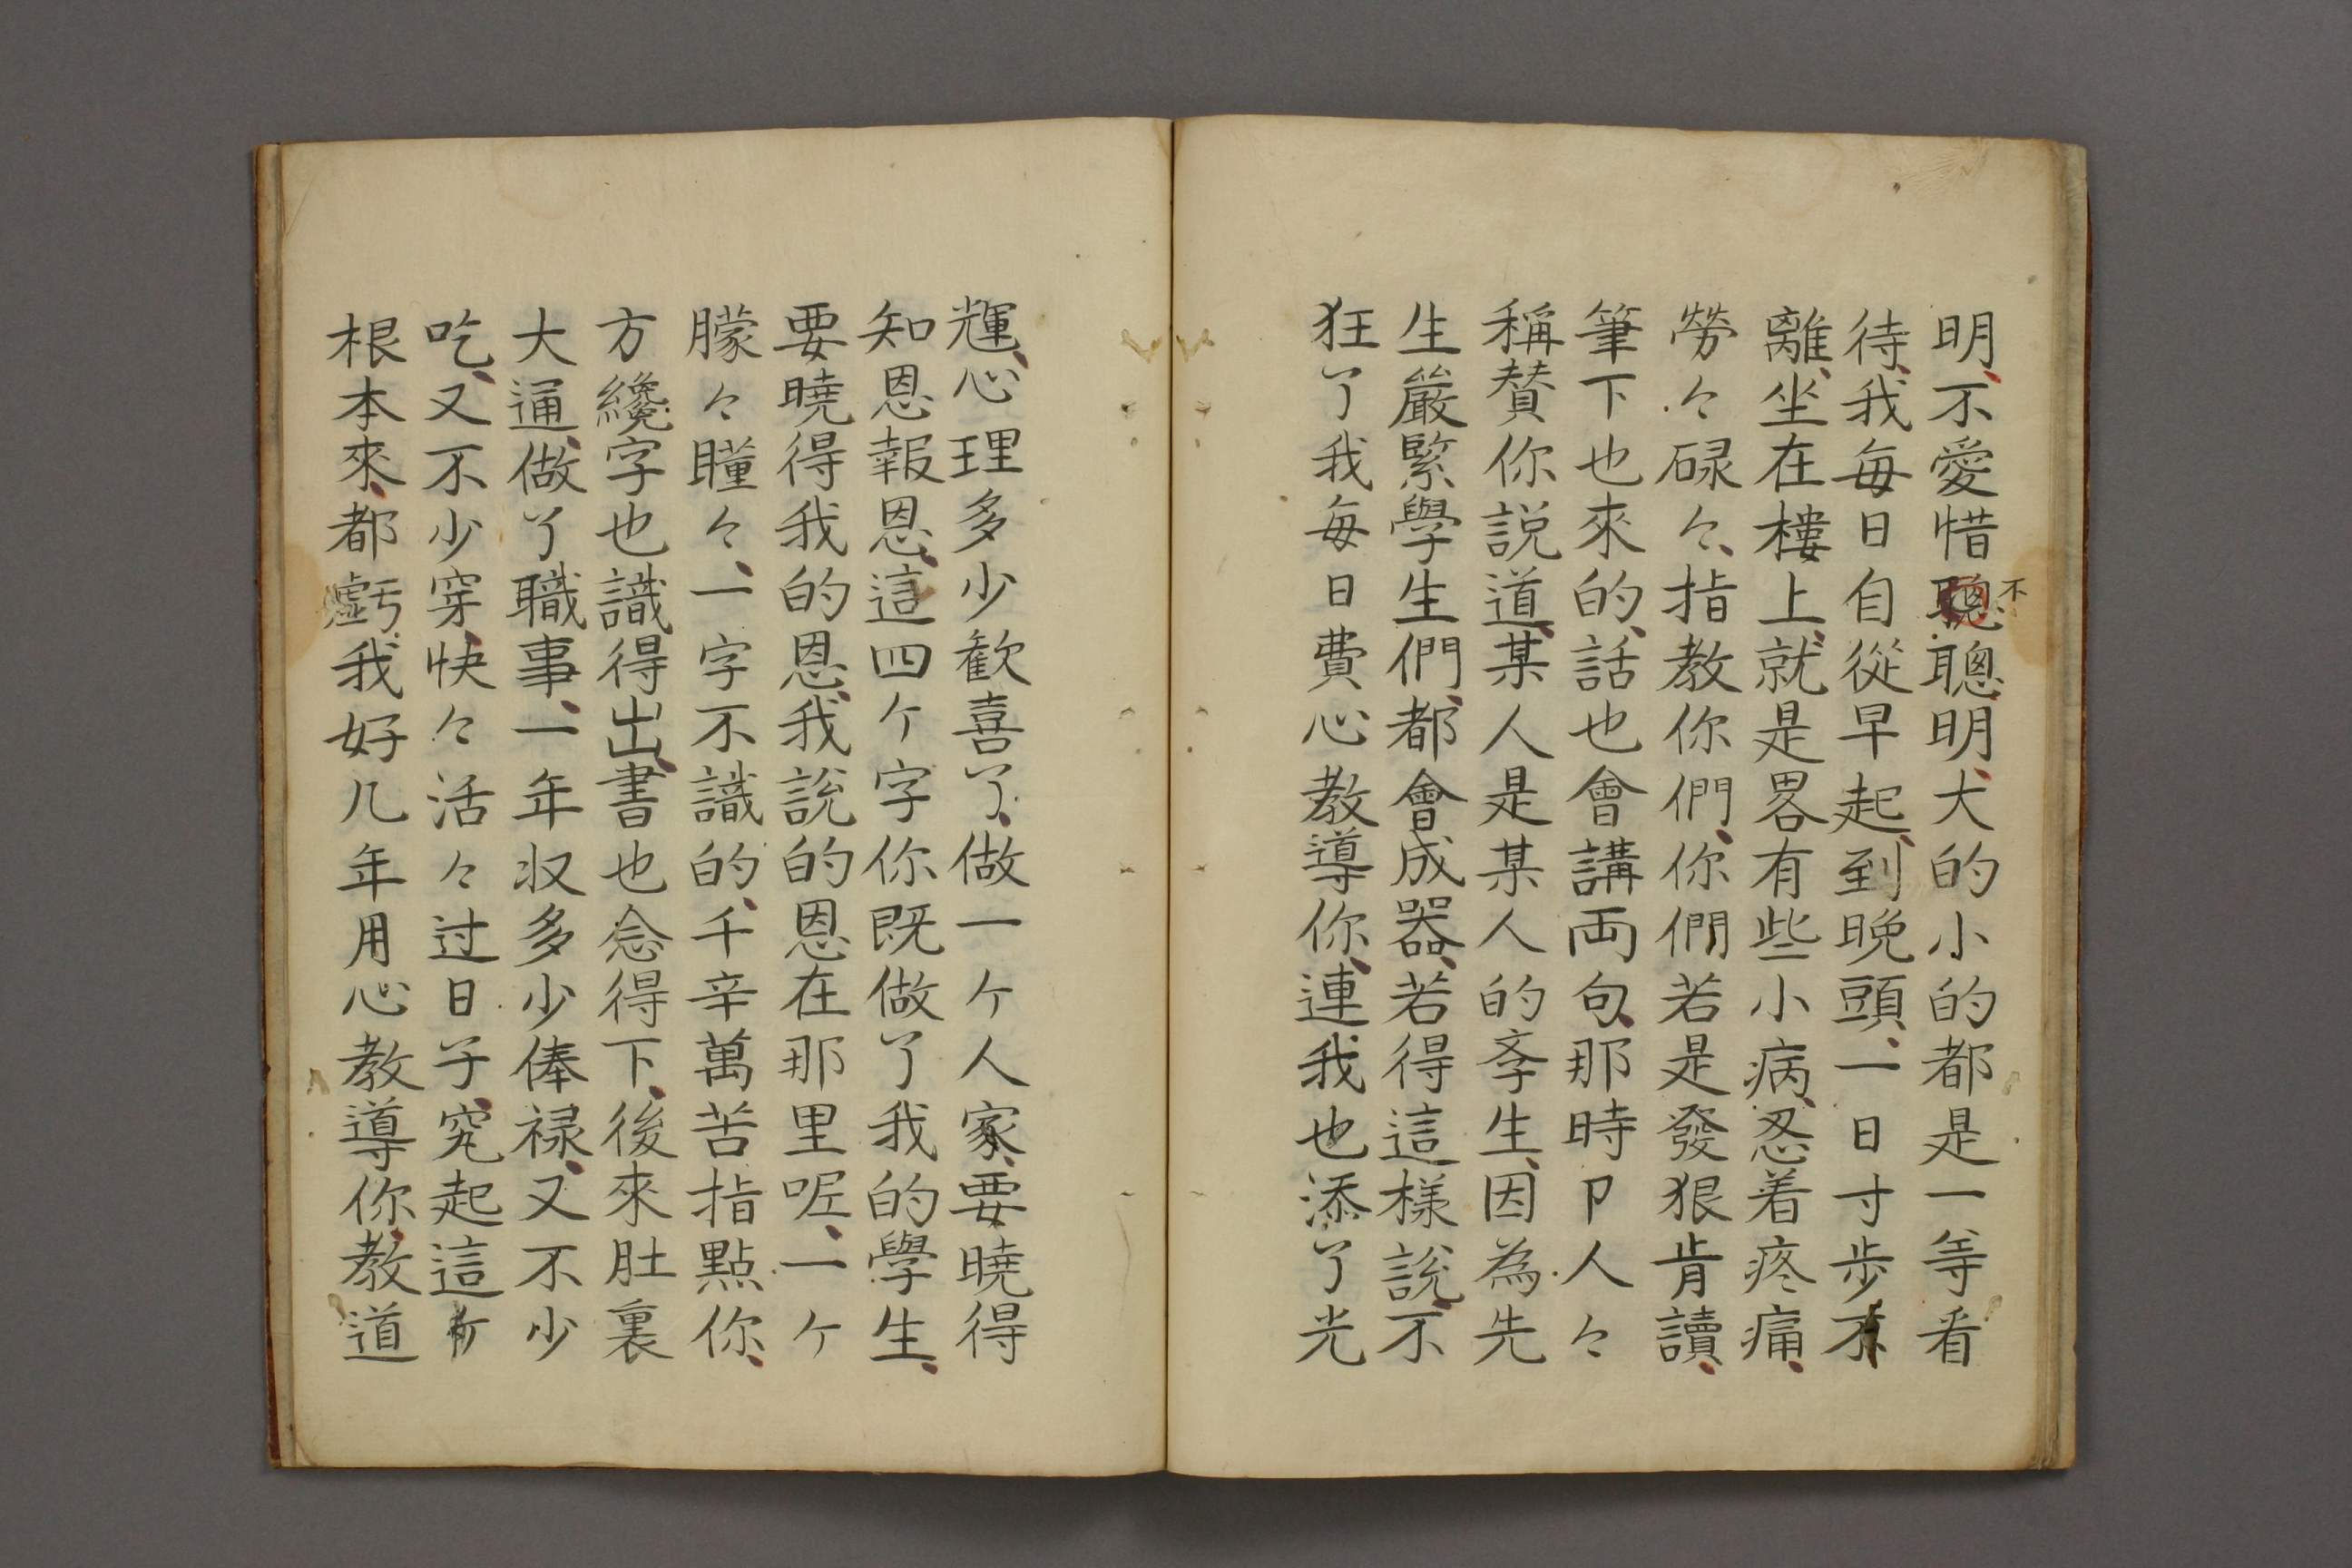 明、不愛惜聰聰明、大的小的都是一等看
不
待、我每日自從早起、到晚頭、一日寸步不
離、坐在樓上、就是畧有些小病、忍着疼痛、
勞々碌々、指教你們、你們若是發狠肯讀、
筆下也來的、話也會講両句、那時卩人々
稱賛你説道、某人是某人的斈生、因為先
生嚴緊學生們、都會成器、若得這樣說、不
狂了我每日費心教導你、連我也添了光
輝、心理多少歓喜了、做一ケ人家、要曉得
知恩報恩、這四ケ字你既做了我的學生、
要曉得我的恩、我說的恩在那里呢、一ケ
朦々瞳々、一字不識的、千辛萬苦指點你、
方纔字也識得出、書也念得下、後來肚裏
大通、做了職事、一年収多少俸禄、又不少
吃、又不少穿、快々活々过日子、究起這ケ
根本來、都虧我好几年用心教導你、教道